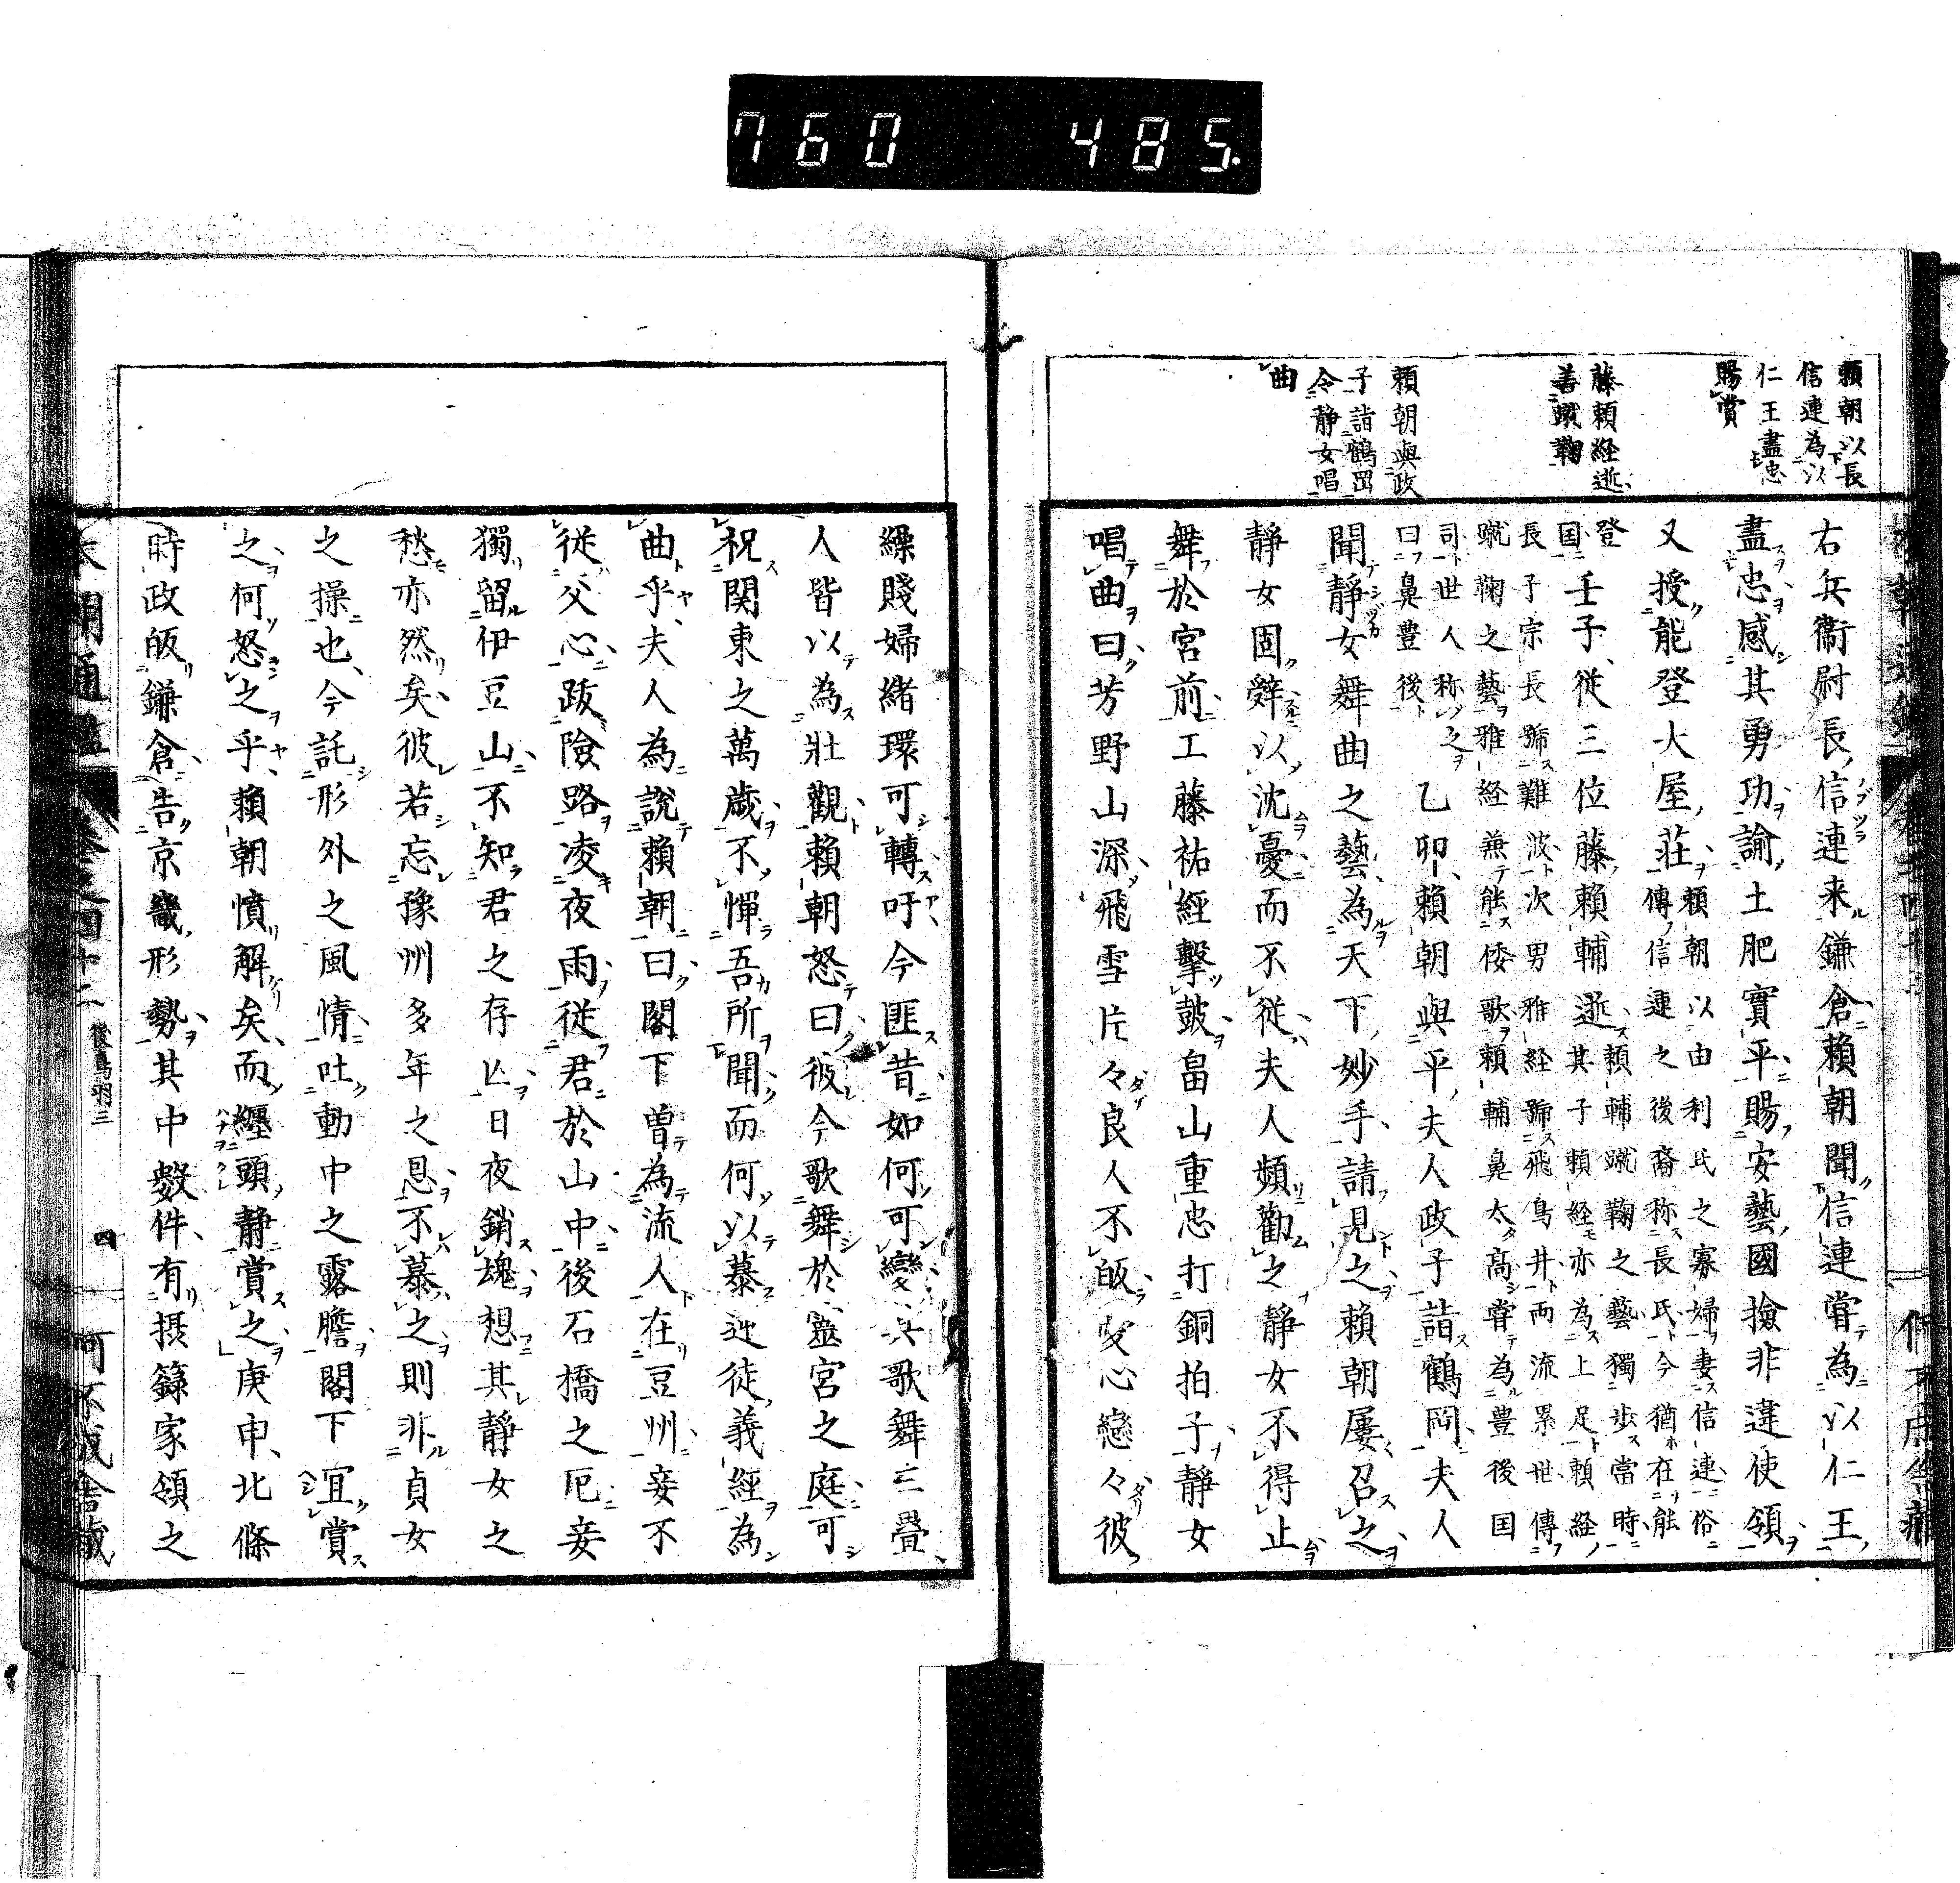 760 485.
頼朝以長
信連為以
仁王盡忠
賜賞
藤頼経逝
善蹴鞠
頼朝與政
子詣鶴岡
令静女唱
曲
右兵衞尉長信連来鎌倉頼朝聞信連嘗為以仁王
盡忠感其勇功諭土肥實平賜安藝國撿非違使領
又授能登大屋荘
頼朝以由利氏之寡婦妻信連俗
傳信連之後裔称長氏今猶在能
登
国
壬子從三位藤頼輔逝
頼輔蹴鞠之藝獨歩當時
其子頼経亦為上足頼経
長子宗長號難波次男雅経號飛鳥井両流累世傳
蹴鞠之藝雅経兼能倭歌頼輔鼻太高嘗為豊後国
司世人称之
曰鼻豊後
乙卯頼朝與平夫人政子詣鶴岡夫人
聞靜女舞曲之藝為天下妙手請見之頼朝屢召之
靜女固辤以沈憂而不従夫人頻勸之靜女不得止
舞於宮前工藤祐經擊鼓畠山重忠打銅拍子靜女
唱曲曰芳野山深飛雪片々良人不皈妾心戀々彼
繰賤婦緒環可轉吁今匪昔如何可變其歌舞三疊
人皆以為壯觀頼朝怒曰彼今歌舞於靈宮之庭可
祝関東之萬歳不憚吾所聞而何以慕逆徒義經為
曲乎夫人為說頼朝曰閣下曽為流人在豆州妾不
從父心跋險路凌夜雨従君於山中後石橋之厄妾
獨留伊豆山不知君之存亾日夜銷魂想其靜女之
愁亦然矣彼若忘豫州多年之恩不慕之則非貞女
之操也今託形外之風情吐動中之露膽閣下宜賞
之何怒之乎頼朝憤解矣而纒頭静賞之庚申北條
時政皈鎌倉告京畿形勢其中數件有摂籙家領之
本朝通鑑 卷之四十二 後鳥羽三 四